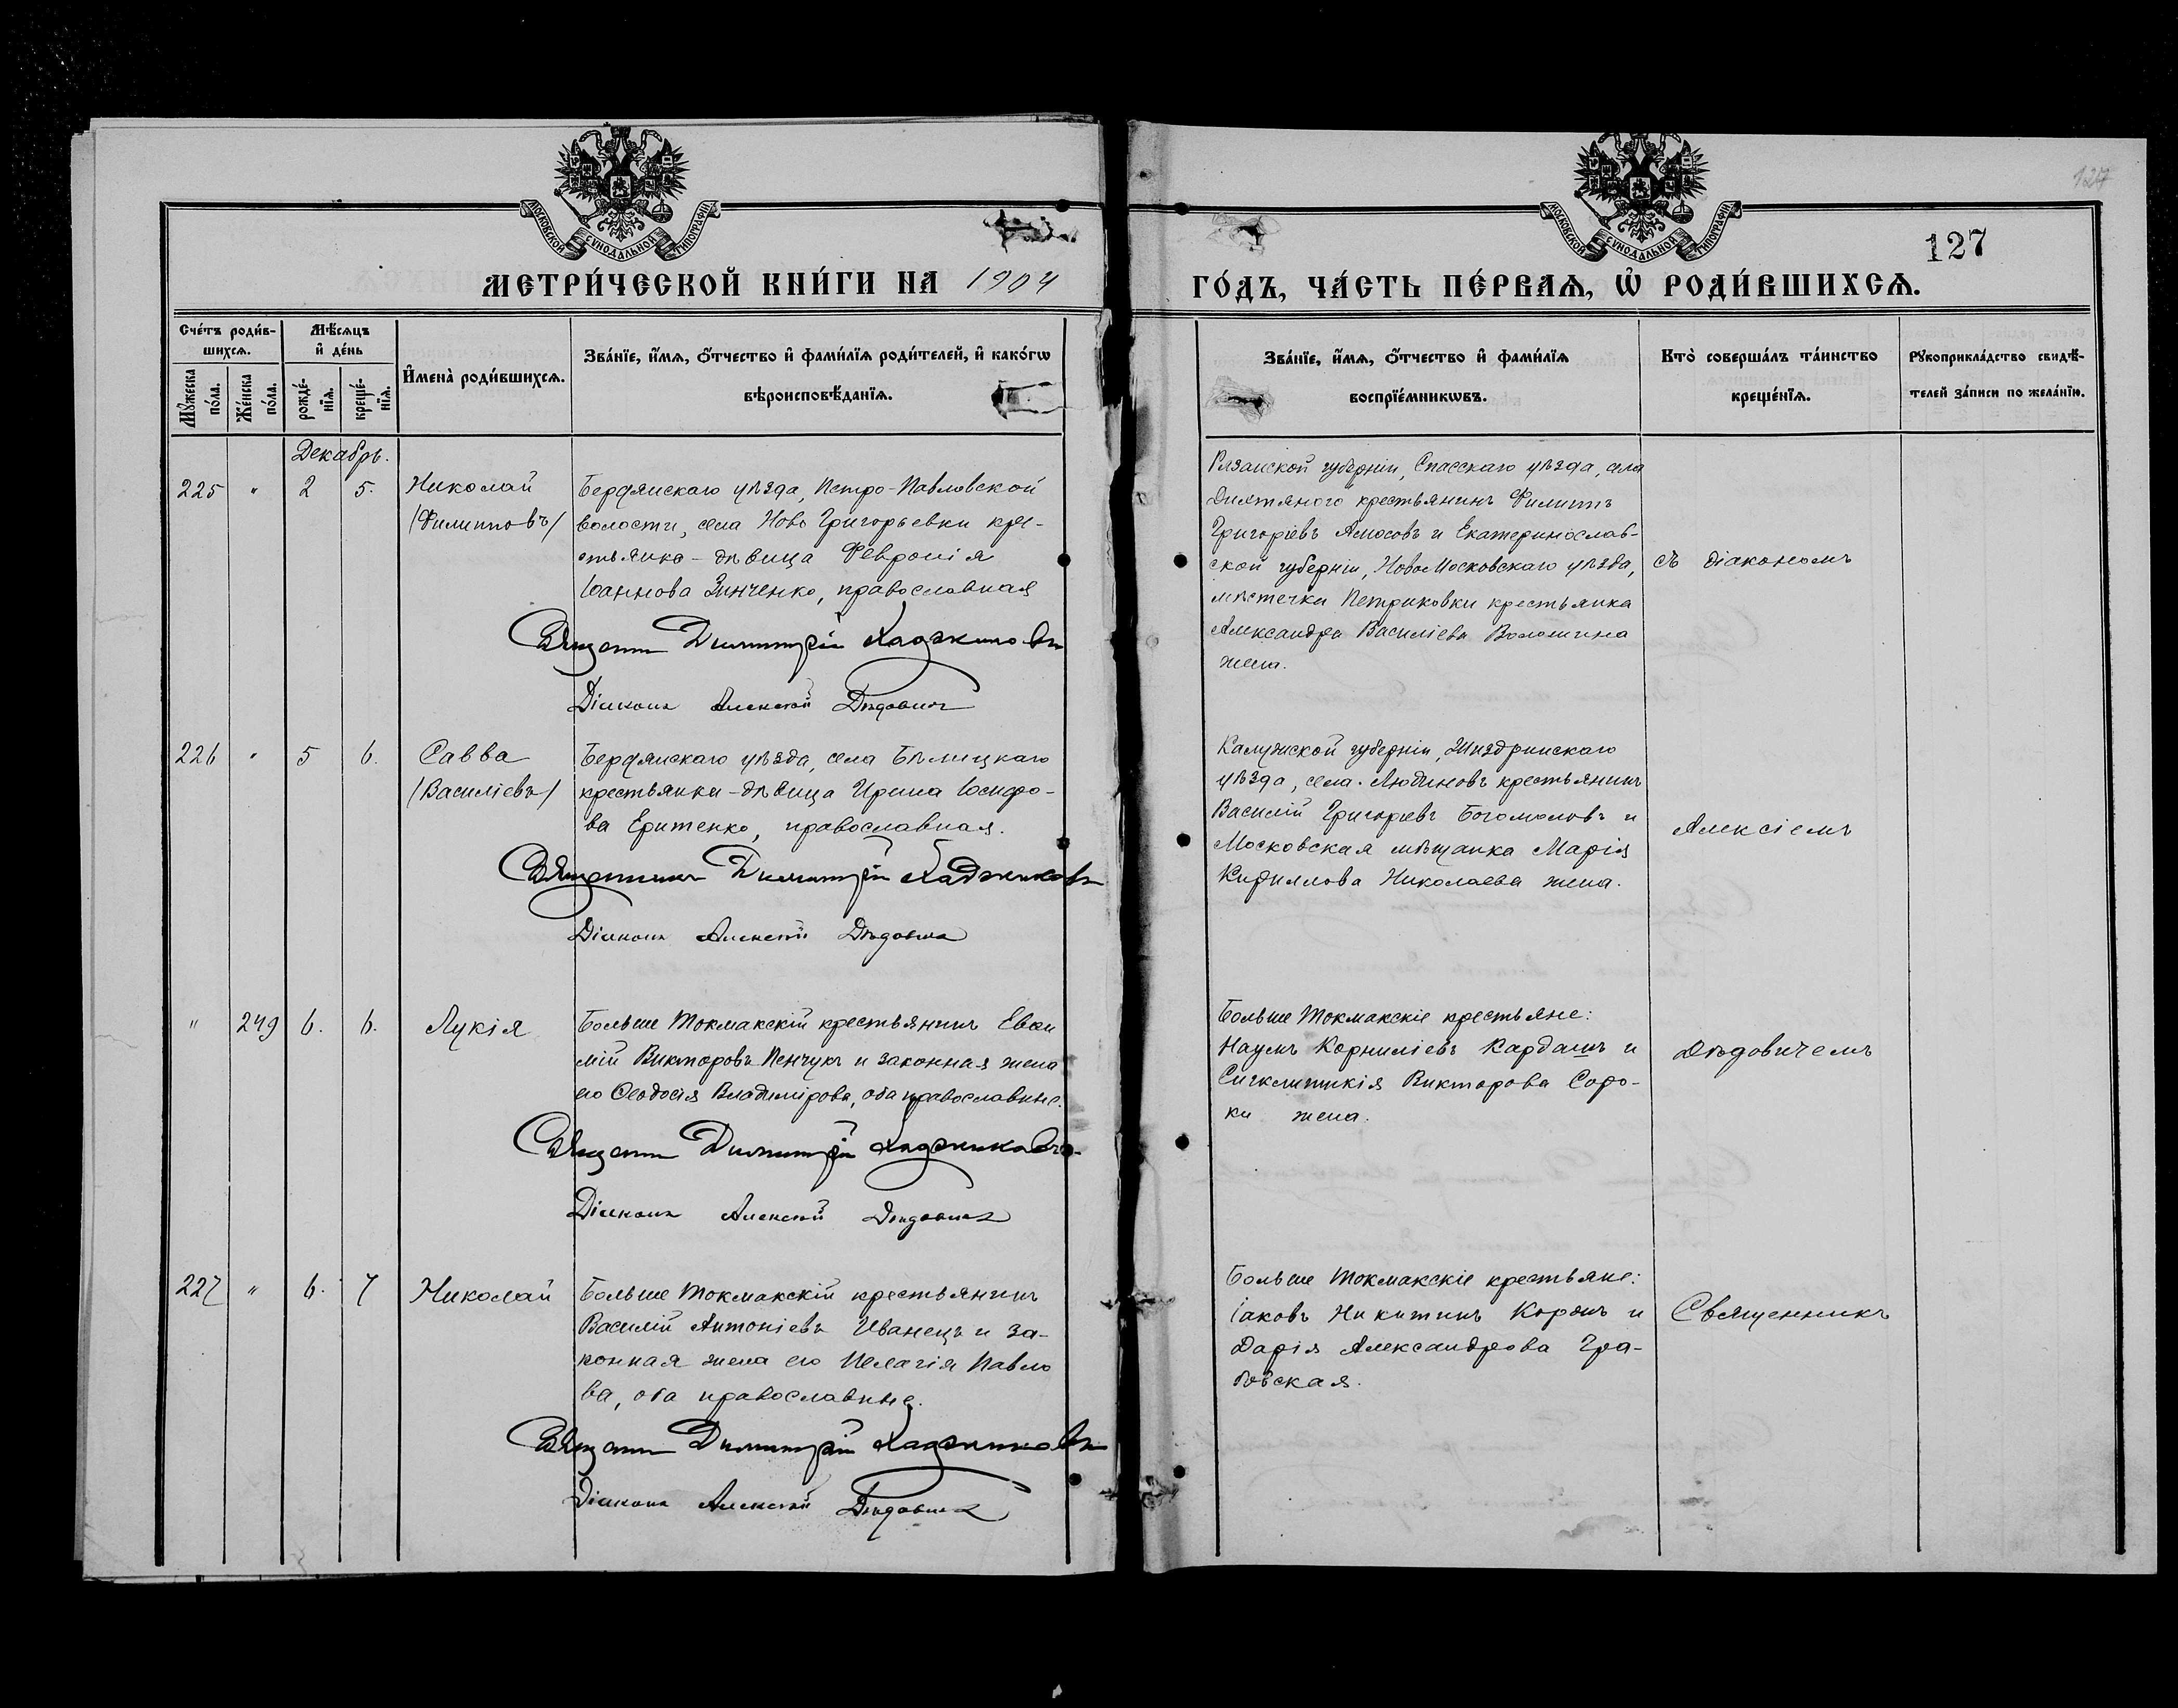 127
МОСКОВСКОЙ СѴНОДАЛЬНОЙ ТИПОГРАФІИ
МОСКОВСКОЙ СѴНОДАЛЬНОЙ ТИПОГРАФІИ
127
МЕТРИ́ЧЕСКОЙ КНИ́ГИ НА 1904
ГО́ДЪ, ЧА́СТЬ ПЕ́РВАѦ, Ѡ҆ РОДИ́ВШИХСѦ.
Сче́тъ роди́в-
шихсѧ.
Мꙋ́жеска по́ла.
Же́нска по́ла.
Мѣ́сѧцъ
и҆ де́нь
рожде́-
нїѧ.
креще́-
нїѧ.
И҆мена̀ роди́вшихсѧ.
Зва́нїе, и҆́мѧ, ѻ҆́тчество и҆ фами́лїѧ роди́телей, и҆ како́гѡ
вѣроисповѣ́данїѧ.
Зва́нїе, и҆́мѧ, ѻ҆́тчество и҆ фами́лїѧ
воспрїе́мникѡвъ.
Кто̀ соверша́лъ та́инство
креще́нїѧ.
Рꙋкоприкла́дство свидѣ́-
телей за́писи по жела́нїю.
Декабрь.
225 " 2 5.
Николай
/Филипповъ/
Бердянскаго уѣзда, Петро-Павловской
волости, села Ново Григорьевки кре-
стьянка - дѣвица Февронія
Іоаннова Зинченко, православная
Священн Димитрій Хаджиновъ
Діаконъ Алексій Дѣдовичъ
Рязанской губерніи, Спасскаго уѣзда, села
крестьянинъ Филиппъ
Григоріевъ Амосовъ и Екатеринослав-
ской губерніи, НовоМосковскаго уѣзда,
мѣстечки Петриковки крестьянка
Александра Василіева Волошина
жена.
съ діакономъ
226 " 5 6.
Савва
/Василіевъ/
Бердянскаго уѣзда, села Бѣлицкаго
крестьянки-дѣвица Ирина Іосифо-
ва Еритенко, православная.
Священникъ Димитрій Хаджиновъ
Діаконъ Алексій Дѣдовичъ
Калужской губерніи, Жиздринскаго
уѣзда, села Людиновъ крестьянинъ
Василій Григоріевъ Богомоловъ и
Московская мѣщанка Марія
Кириллова Николаева жена.
Алексіемъ
" 249 6. 6.
Лукія
Больше Токмакскій крестьянинъ Евѳи
мій Викторовъ Пенчукъ и законная жена
его Ѳеодосія Владимірова, оба православные.
Священн Димитрій Хаджиновъ
Діаконъ Алексій Дѣдовичъ
Больше Токмакскіе крестьяне:
Наумъ Корниліевъ Кардашъ и
Сигклитикія Викторова Соро-
ки жена.
Дѣдовичемъ
227 " 6. 7
Николай
Больше Токмакскій крестьянинъ
Василій Антоніевъ Иванецъ и за-
конная жена его Пелагія Павло
ва, оба православные.
Священн Димитрій Хаджиновъ
Діаконъ Алексій Дѣдовичъ
Больше Токмакскіе крестьяне:
Іаковъ Никитинъ и
Дарія Александрова Гра-
бовская.
Священникъ